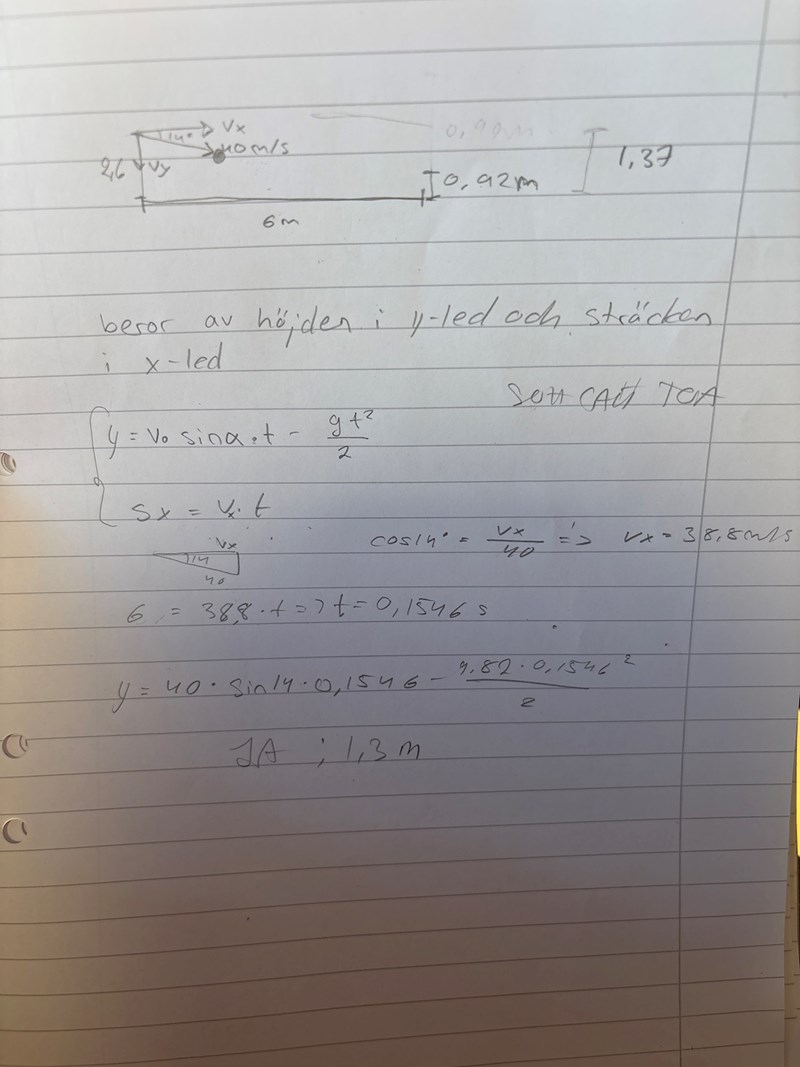 Vx
14°
40 m/s
2,6
Vy
0,92m
1,37
6m
beror av höjden i y-led och sträckan
i x-led
SOH CAH TOA
y = v₀ sinα · t - gt²/2
Sx = Vx · t
Vx
14
40
cos14° = Vx/40 => Vx = 38,8m/s
6 = 38,8 · t => t = 0,1546 s
y = 40 · sin14 · 0,1546 - 9.82 · 0,1546²/2
JA ; 1,3 m